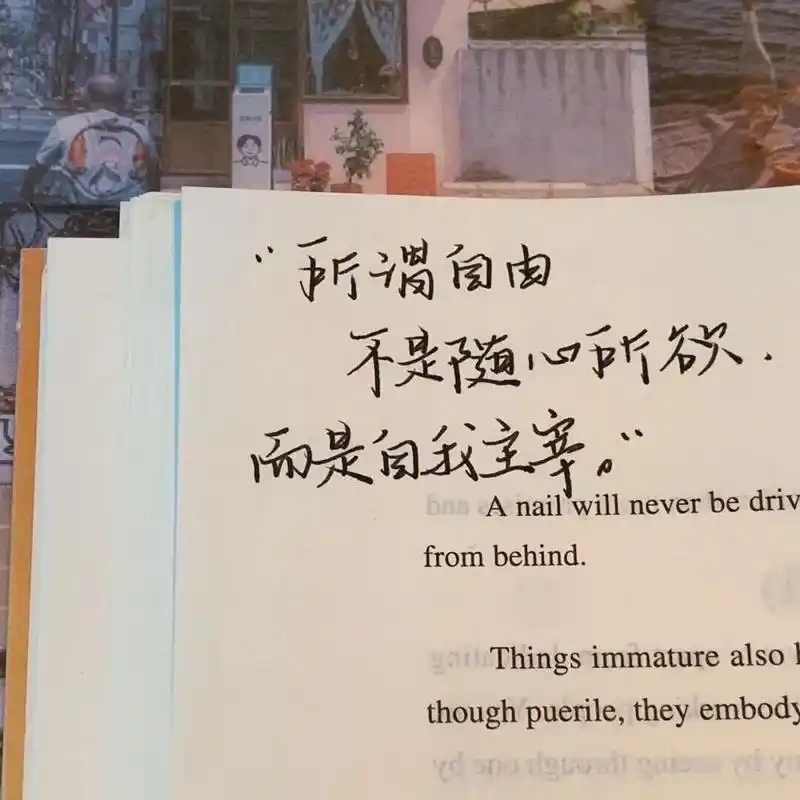 “所谓自由
不是随心所欲.
而是自我主宰。”
A nail will never be driv
from behind.
Things immature also h
though puerile, they embody